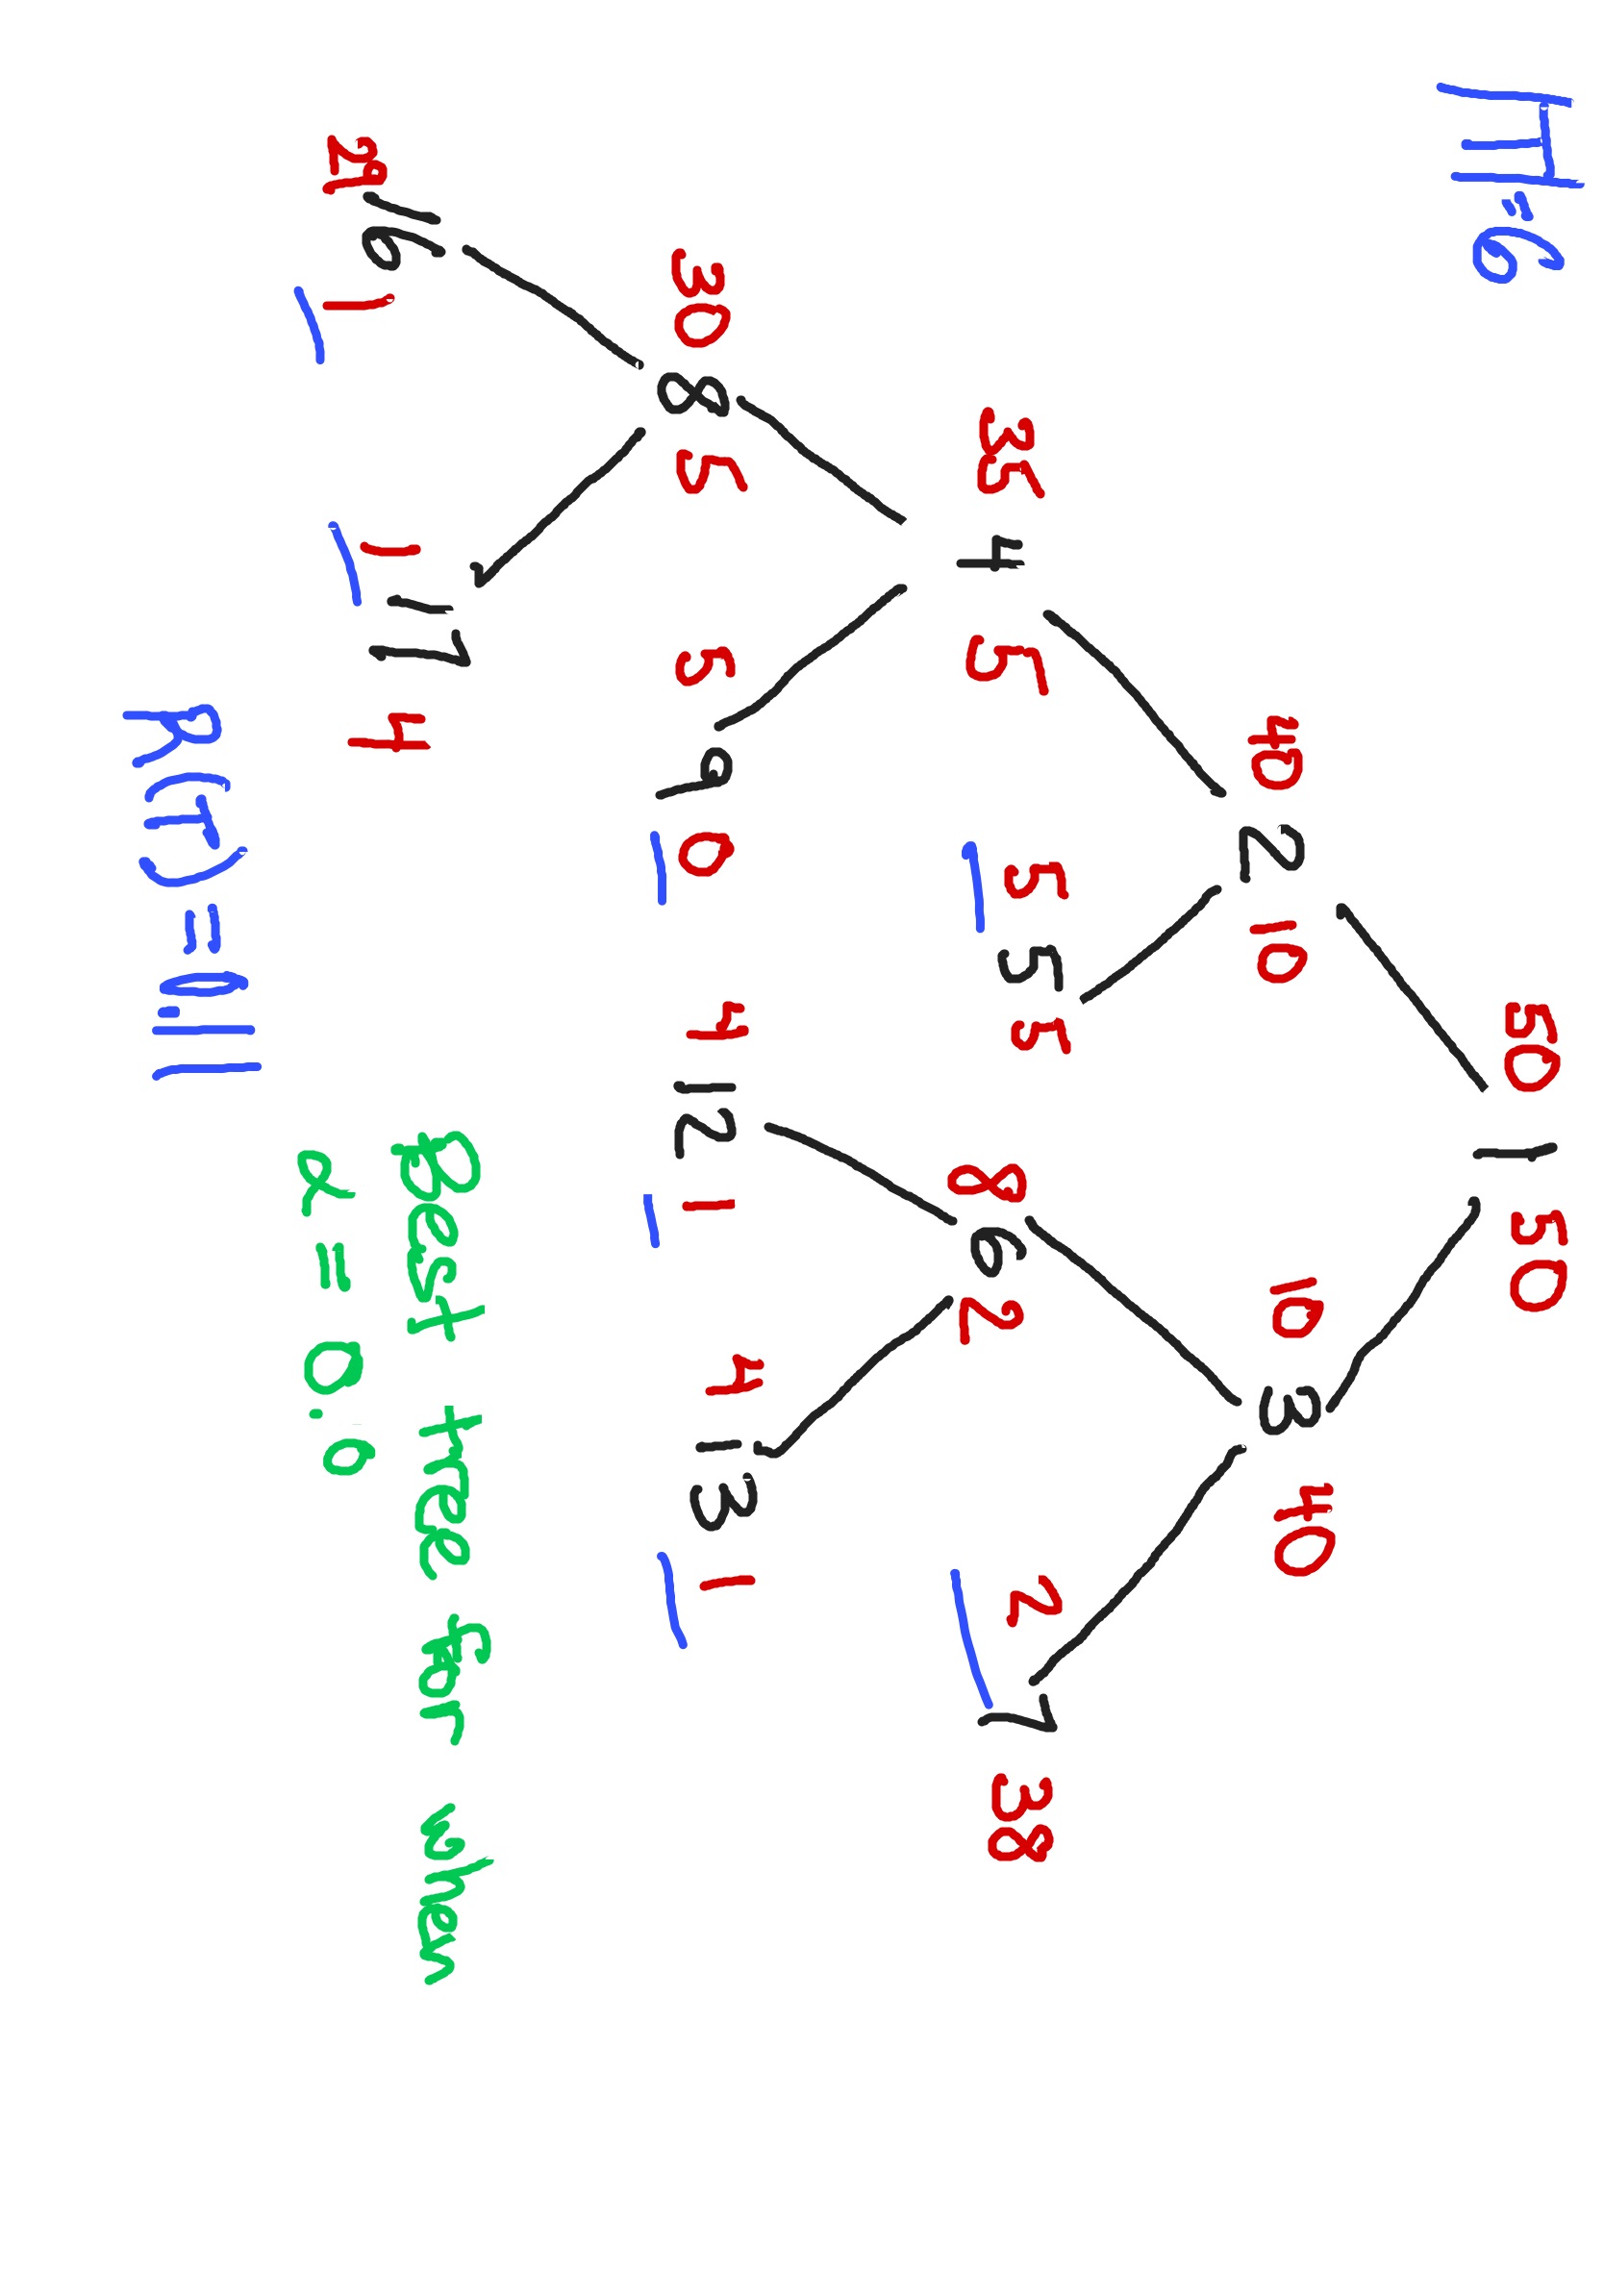 |T|=6
50 1 50
40 2 10 10 3 40
35 4 5 5 5 5 8 6 2 2 7 38
30 8 5 5 9 0 4 12 1 4 13 1
29 16 1 1 17 4
R(T) = 0.11
Best tree for when
α = 0.0